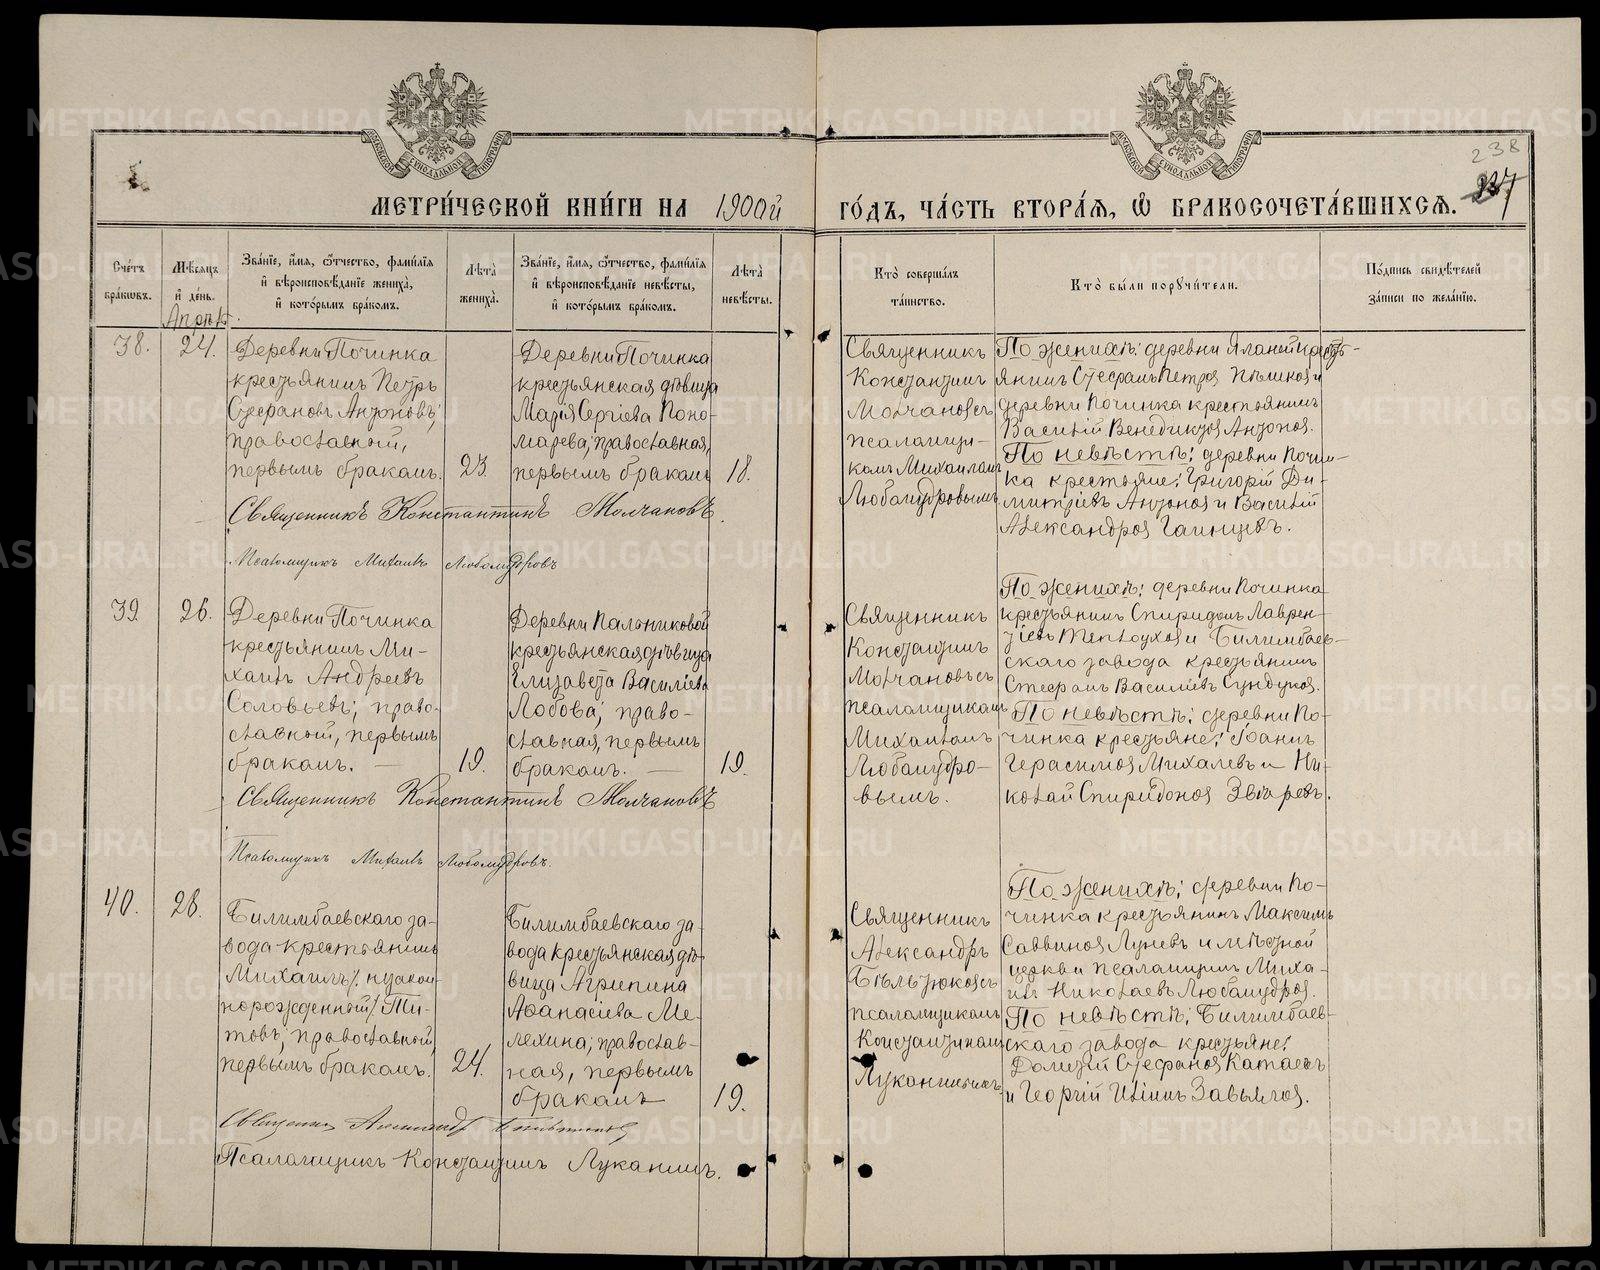 238
237
МЕТРИ́ЧЕСКОЙ КНИ́ГИ НА 1900й ГО́ДЪ, ЧА́СТЬ ВТОРА́Я, Ѡ БРАКОСОЧЕТА́ВШИХСЯ.
Счётъ браковъ.
Мѣсяцъ и день.
Апрѣль.
Зва́нїе, и́мя, ѻ҆́тчество, фами́лїя
и҆ вѣроисповѣ́данїе жениха̀,
и҆ кото́рымъ бра́комъ.
Лѣта̀
жениха̀.
Зва́нїе, и́мя, ѻ҆́тчество, фами́лїя
и҆ вѣроисповѣ́данїе невѣ́сты,
и҆ кото́рымъ бра́комъ.
Лѣта̀
невѣ́сты.
Кто̀ соверша́лъ
та́инство.
Кто̀ бы́ли поручи́тели.
По́дпись свидѣ́телей
за́писи по жела́нїю.
38.
24.
Деревни Починка
крестьянинъ Петръ
Стефановъ Антоновъ;
православный,
первымъ бракомъ.
23.
Деревни Починка
крестьянская дѣвица
Марія Сергіева Поно-
марева; православная,
первымъ бракомъ
18.
Священникъ
Константинъ
Молчановъ съ
псаломщи-
комъ Михаиломъ
Любомудровымъ
По женихѣ: деревни Яланей кресть-
янинъ Стефанъ Петровъ Пѣшковъ и
деревни Починка крестьянинъ
Василій Венедиктовъ Антоновъ.
По невѣстѣ: деревни Почин-
ка крестьяне: Григорій Ди-
митріевъ Антоновъ и Василій
Александровъ Галицевъ.
Священникъ Константинъ Молчановъ.
Псаломщикъ Михаилъ Любомудровъ
39.
26.
Деревни Починка
крестьянинъ Ми-
хаилъ Андреевъ
Соловьевъ; право-
славный, первымъ
бракомъ. —
19.
Деревни Пальниковой
крестьянская дѣвица
Елизавета Василіева
Лобова; право-
славная, первымъ
бракомъ. —
19.
Священникъ
Константинъ
Молчановъ съ
псаломщикомъ
Михаиломъ
Любомудро-
вымъ.
По женихѣ: деревни Починка
крестьянинъ Спиридонъ Лаврен-
тіевъ Теплоуховъ и Билимбаев-
скаго завода крестьянинъ
Стефанъ Василіевъ Сундуковъ.
По невѣстѣ: деревни По-
чинка крестьяне: Іоаннъ
Герасимовъ Михалевъ и Ни-
колай Спиридоновъ Звѣревъ.
Священникъ Константинъ Молчановъ
Псаломщикъ Михаилъ Любомудровъ.
40.
28.
Билимбаевскаго за-
вода крестьянинъ
Михаилъ / незакон-
норожденный / Ти-
товъ; православный,
первымъ бракомъ.
24.
Билимбаевскаго за-
вода крестьянская дѣ-
вица Агрипина
Аѳанасіева Ме-
лехина; православ-
ная, первымъ
бракомъ
19.
Священникъ
Александръ
Бѣльтюковъ съ
псаломщикомъ
Константиномъ
Луканинымъ.
По женихѣ: деревни По-
чинка крестьянинъ Максимъ
Саввиновъ Луневъ и мѣстной
церкви псаломщикъ Миха-
илъ Николаевъ Любомудровъ.
По невѣстѣ: Билимбаев-
скаго завода крестьяне:
Стефановъ Катаевъ
и Георгій Завьяловъ.
Священникъ Александръ Бѣльтюковъ
Псаломщикъ Константинъ Луканинъ.
METRIKI.GASO-URAL.RU